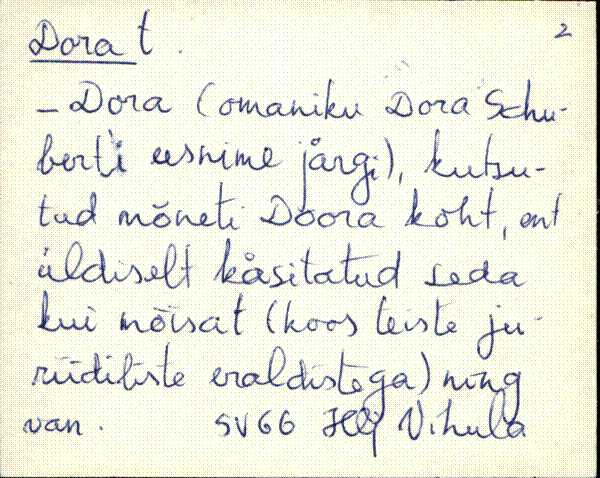 Dora t. 2
– Dora (omaniku Dora Schu-
berti eesnime järgi), kutsu-
tud mõneti Doora koht, ent
üldiselt käsitatud seda
kui mõisat (koos teiste ju-
riidiliste eraldistega) ning
van. SV66 Hlj Vihula